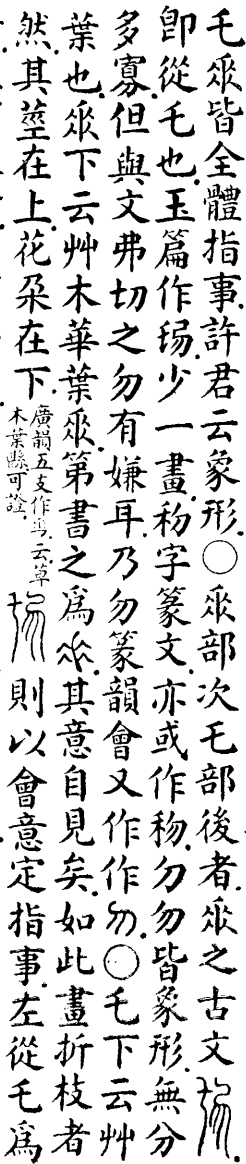 乇𠂹皆全體指事許君云象形〇𠂹部次乇部後者𠂹之古文
卽從乇也玉篇作少一畫字篆文亦或作勿皆象形無分
多寡但與文弗切之勿有嫌耳乃勿篆韻會又作作〇乇下云艸
葉也𠂹下云艸木華葉𠂹第書之爲其意自見矣如此畫折枝者
然其莖在上花朶在下
廣韻五支作云草
木葉縣可證
則以會意定指事左從乇爲